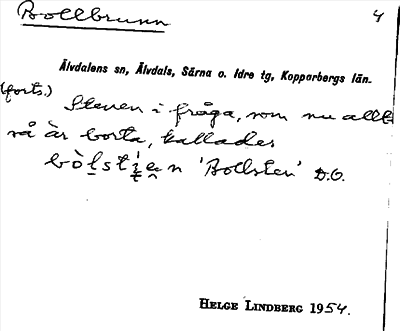 Bollbrunn 4
Älvdalens sn, Älvdals, Särna o. Idre tg, Kopparbergs län.
(forts.)
Stenen i fråga, som nu allt
så är borta, kallades
'Bollsten' D.O.
HELGE LINDBERG 1954.